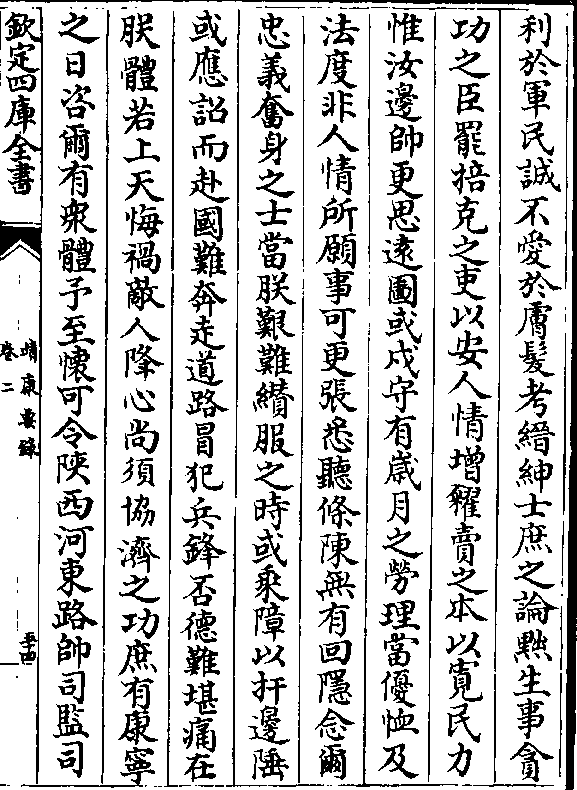 利於軍民誠不愛於膚髮考縉紳士庶之論黜生事貪
功之臣罷掊克之吏以安人情增糴賣之本以寛民力
惟汝邊帥更思逺圖或戍守有歳月之勞理當優恤及
法度非人情所願事可更張悉聽條陳無有回隱念爾
忠義奮身之士當朕艱難纘服之時或乘障以扞邊陲
或應詔而赴國難奔走道路冒犯兵鋒否德難堪痛在
朕體若上天悔禍敵人降心尚須協濟之功庶有康寧
之日咨爾有衆體予至懷可令陝西河東路帥司監司
欽定四庫全書
靖康要錄
卷二
五十四